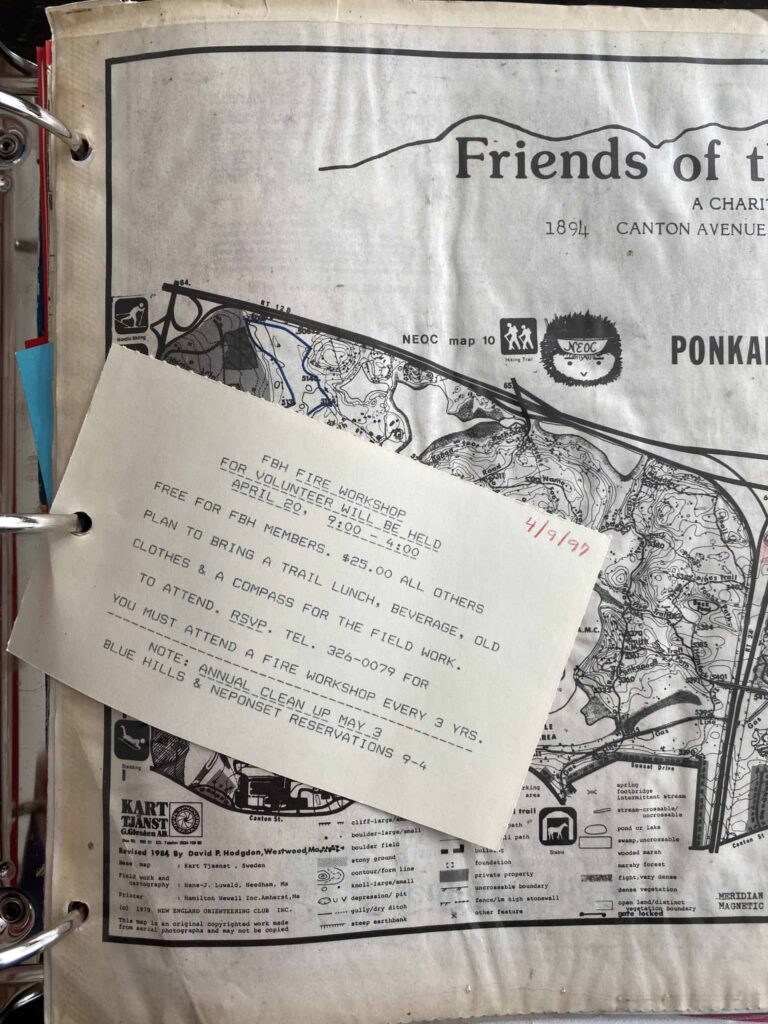 Friends of t
A CHARIT
1894 CANTON AVENUE
64.
RT 128
Nordic Skiing
NEOC map 10
Hiking Trail
NEOC
PONKA
65
4/9/97
FBH FIRE WORKSHOP
FOR VOLUNTEER WILL BE HELD
APRIL 20, 9:00 - 4:00
FREE FOR FBH MEMBERS. $25.00 ALL OTHERS
PLAN TO BRING A TRAIL LUNCH, BEVERAGE, OLD
CLOTHES & A COMPASS FOR THE FIELD WORK.
TO ATTEND. RSVP. TEL. 326-0079 FOR
YOU MUST ATTEND A FIRE WORKSHOP EVERY 3 YRS.
NOTE: ANNUAL CLEAN UP MAY 3
BLUE HILLS & NEPONSET RESERVATIONS 9-4
A.M.C.
RT 28
Gas Line
Sunset Drive
Canton St.
Canton St
Sledding
Stable
KART
TJÄNST
G.Glensén AB.
Revised 1984 By David P. Hodgdon, Westwood, Ma.
Base map : Kart Tjasnst, Sweden
Field work and
cartography : Hans-J. Luwald, Needham, Ma
Printer : Hamilton Newell Inc.Amherst,Ma
(c) 1979 NEW ENGLAND ORIENTEERING CLUB INC.
This map is an original copyrighted work made
from aerial photographs and may not be copied
cliff-large/
boulder-large/small
boulder field
stony ground
contour/form line
knoll-large/small
depression/ pit
gully/dry ditch
steep earthbank
area
trail
path
path
building
foundation
private property
uncrossable boundary
fence/1m high stonewall
other feature
spring
footbridge
intermittent stream
stream-crossable/
uncrossable
pond or lake
swamp,uncrossable
wooded marsh
marshy forest
fight,very dense
dense vegetation
open land/distinct
vegetation boundary
gate locked
MERIDIAN
MAGNETIC